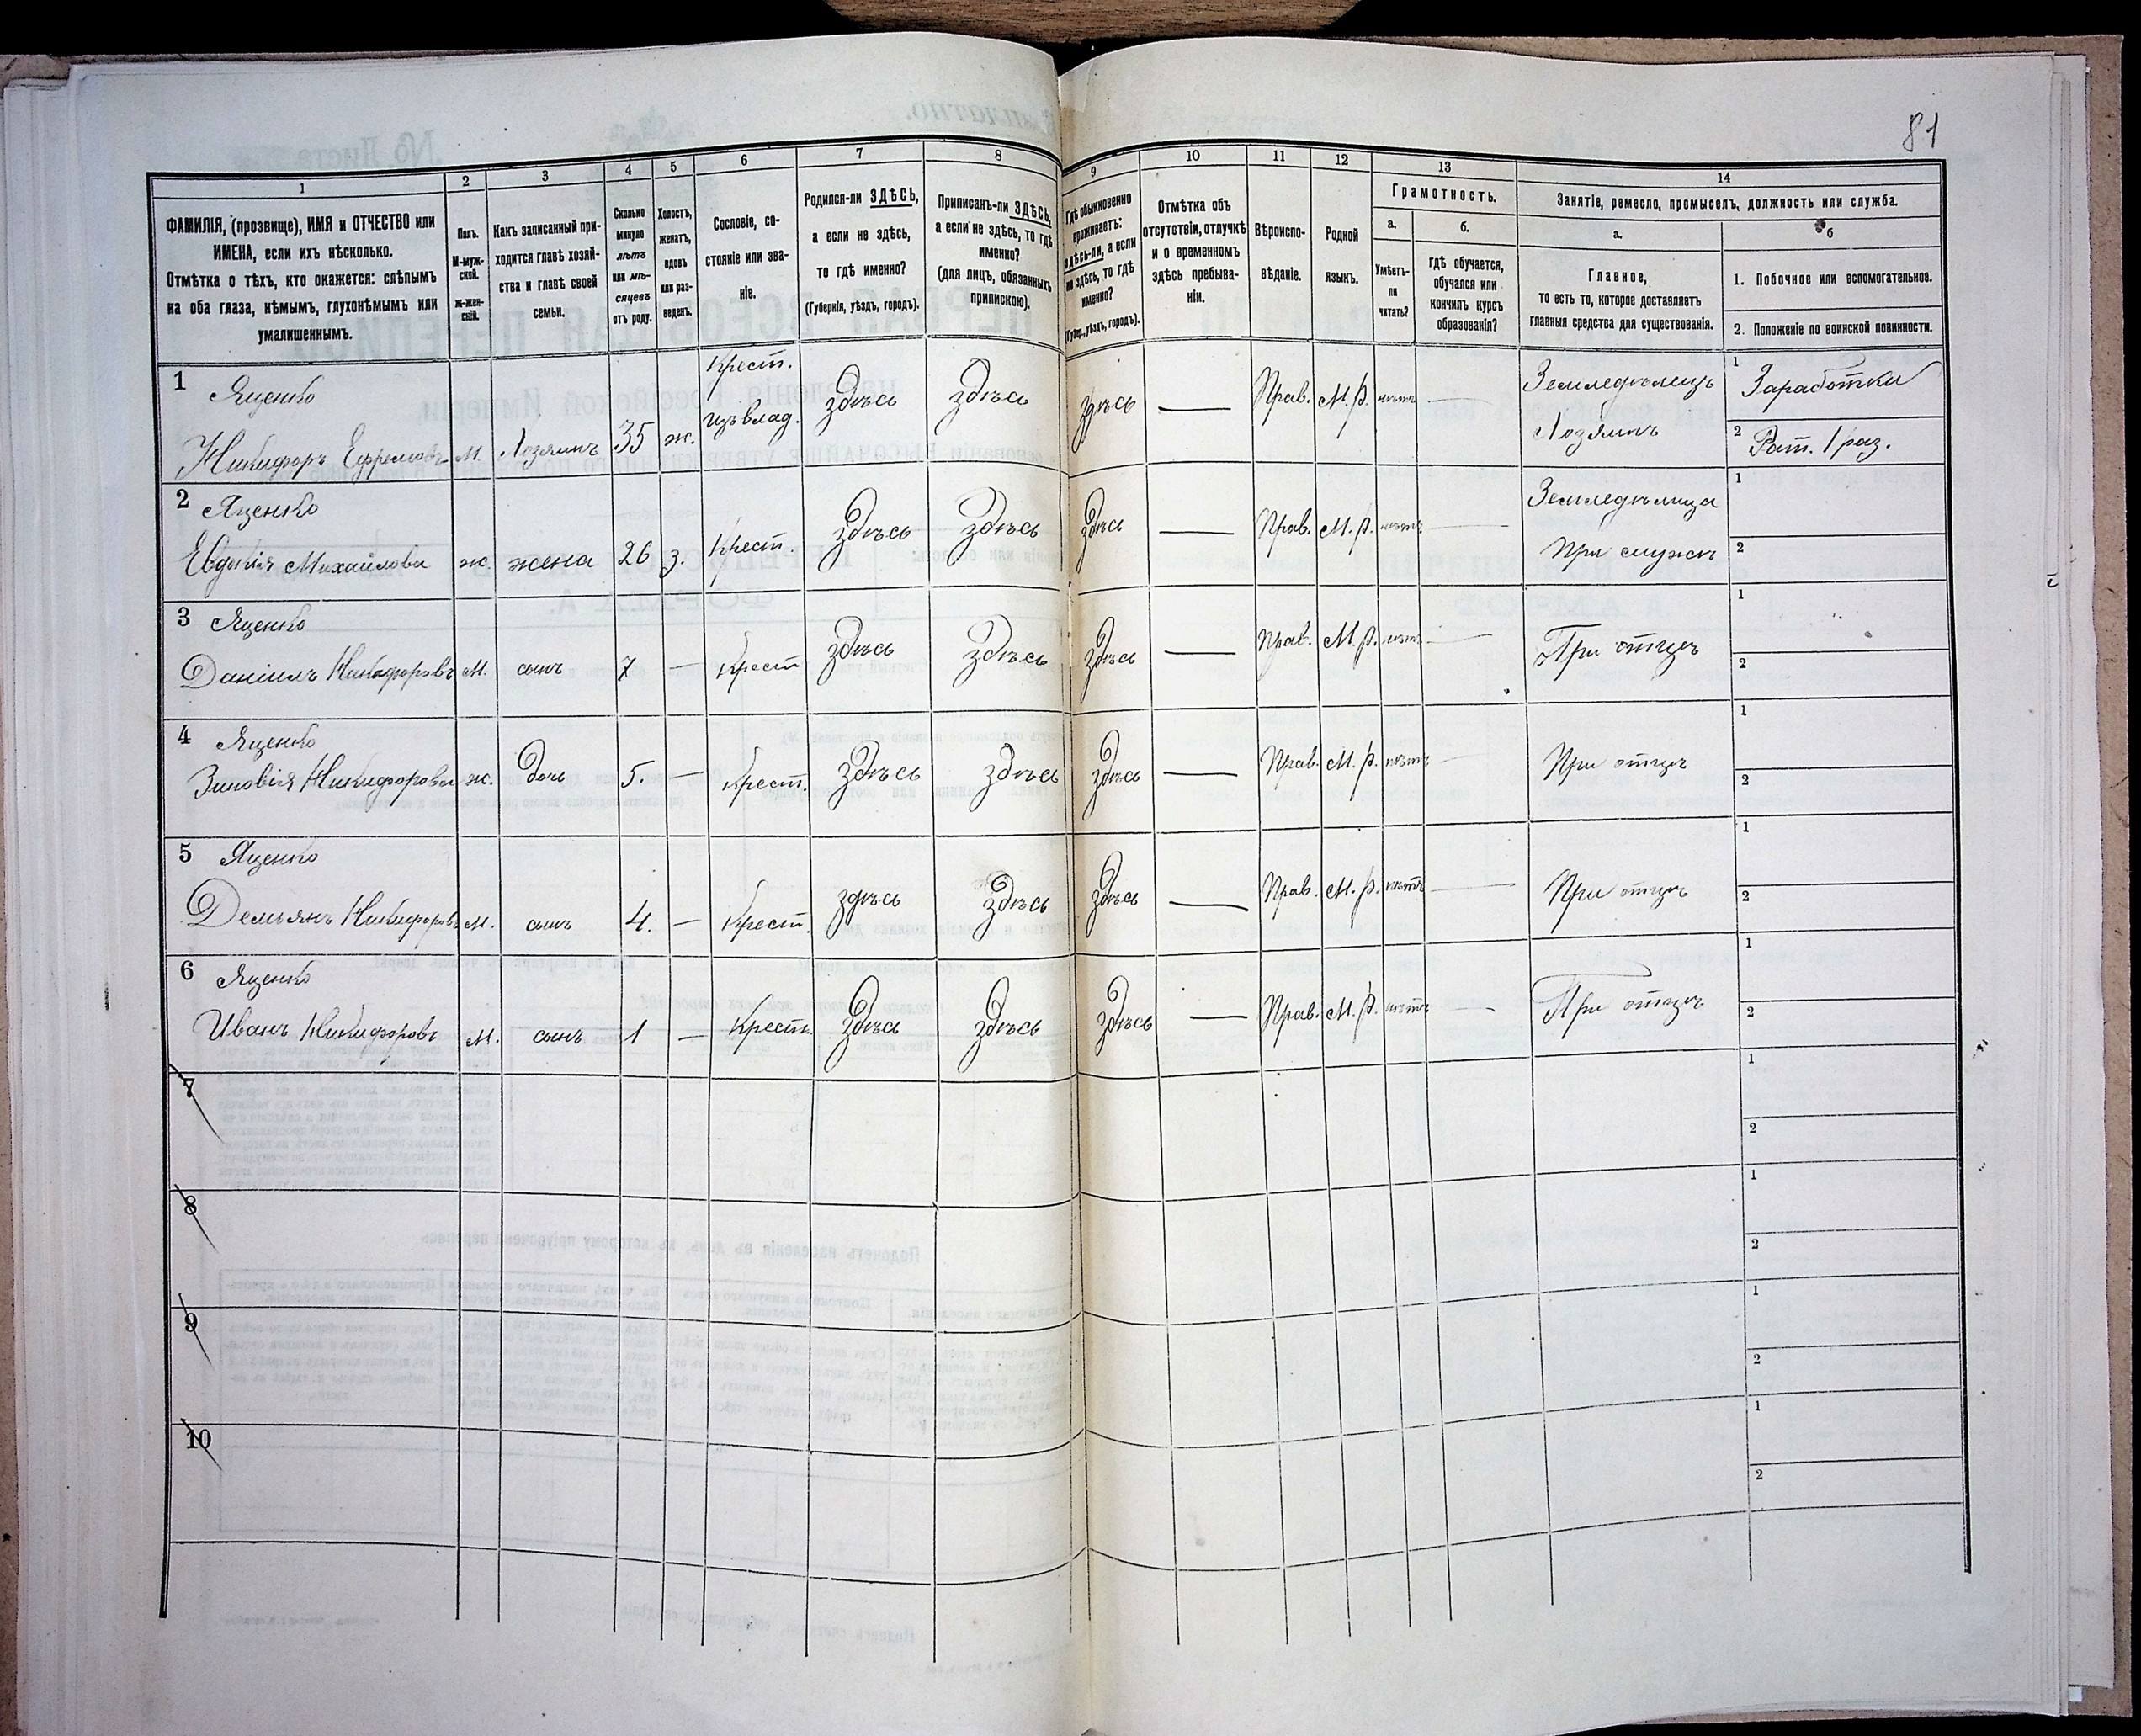 81
1
2
3
4
5
6
7
8
9
10
11
12
13
14
ФАМИЛІЯ, (прозвище), ИМЯ и ОТЧЕСТВО или
ИМЕНА, если ихъ нѣсколько.
Отмѣтка о тѣхъ, кто окажется: слѣпымъ
на оба глаза, нѣмымъ, глухонѣмымъ или
умалишеннымъ.
Полъ.
М-муж-
ской.
Ж-жен-
скій.
Какъ записанный при-
ходится главѣ хозяй-
ства и главѣ своей
семьи.
Сколько
минуло
лѣтъ
или мѣ-
сяцевъ
отъ роду.
Холостъ,
женатъ,
вдовъ
или раз-
веденъ.
Сословіе, со-
стояніе или зва-
ніе.
Родился-ли ЗДѢСЬ,
а если не здѣсь,
то гдѣ именно?
(Губернія, уѣздъ, городъ).
Приписанъ-ли ЗДѢСЬ,
а если не здѣсь, то гдѣ
именно?
(для лицъ, обязанныхъ
припискою).
Гдѣ обыкновенно
проживаетъ:
здѣсь-ли, а если
не здѣсь, то гдѣ
именно?
(Губ., уѣздъ, городъ).
Отмѣтка объ
отсутствіи, отлучкѣ
и о временномъ
здѣсь пребыва-
ніи.
Вѣроиспо-
вѣданіе.
Родной
языкъ.
Грамотность.
а.
б.
Умѣетъ-
ли
читать?
гдѣ обучается,
обучался или
кончилъ курсъ
образованія?
Занятіе, ремесло, промыселъ, должность или служба.
а.
б
Главное,
то есть то, которое доставляетъ
главныя средства для существованія.
1. Побочное или вспомогательное.
2. Положеніе по воинской повинности.
1 Яценко
Никифоръ Ефремовъ М. Хозяинъ 35 ж. Крест. изъ влад. здѣсь здѣсь здѣсь — Прав. М.р. нѣтъ — Земледѣлецъ Хозяинъ 1 Заработки
2 Рат. 1 раз.
2 Яценко
Евдокія Михайлова ж. жена 26 з. Крест. здѣсь здѣсь здѣсь — Прав. М.р. нѣтъ — Земледѣлица При мужѣ 1
2
3 Яценко
Даніилъ Никифоровъ М. сынъ 7 — Крест здѣсь здѣсь здѣсь — Прав. М.р. нѣтъ — При отцѣ 1
2
4 Яценко
Зиновія Никифорова ж. дочь 5. — Крест. здѣсь здѣсь здѣсь — Прав. М.р. нѣтъ — При отцѣ 1
2
5 Яценко
Демьянъ Никифоровъ М. сынъ 4. — Крест. здѣсь здѣсь здѣсь — Прав. М.р. нѣтъ — При отцѣ 1
2
6 Яценко
Иванъ Никифоровъ М. сынъ 1 — Крест. здѣсь здѣсь здѣсь — Прав. М.р. нѣтъ — При отцѣ 1
2
7 1
2
8 1
2
9 1
2
10 1
2